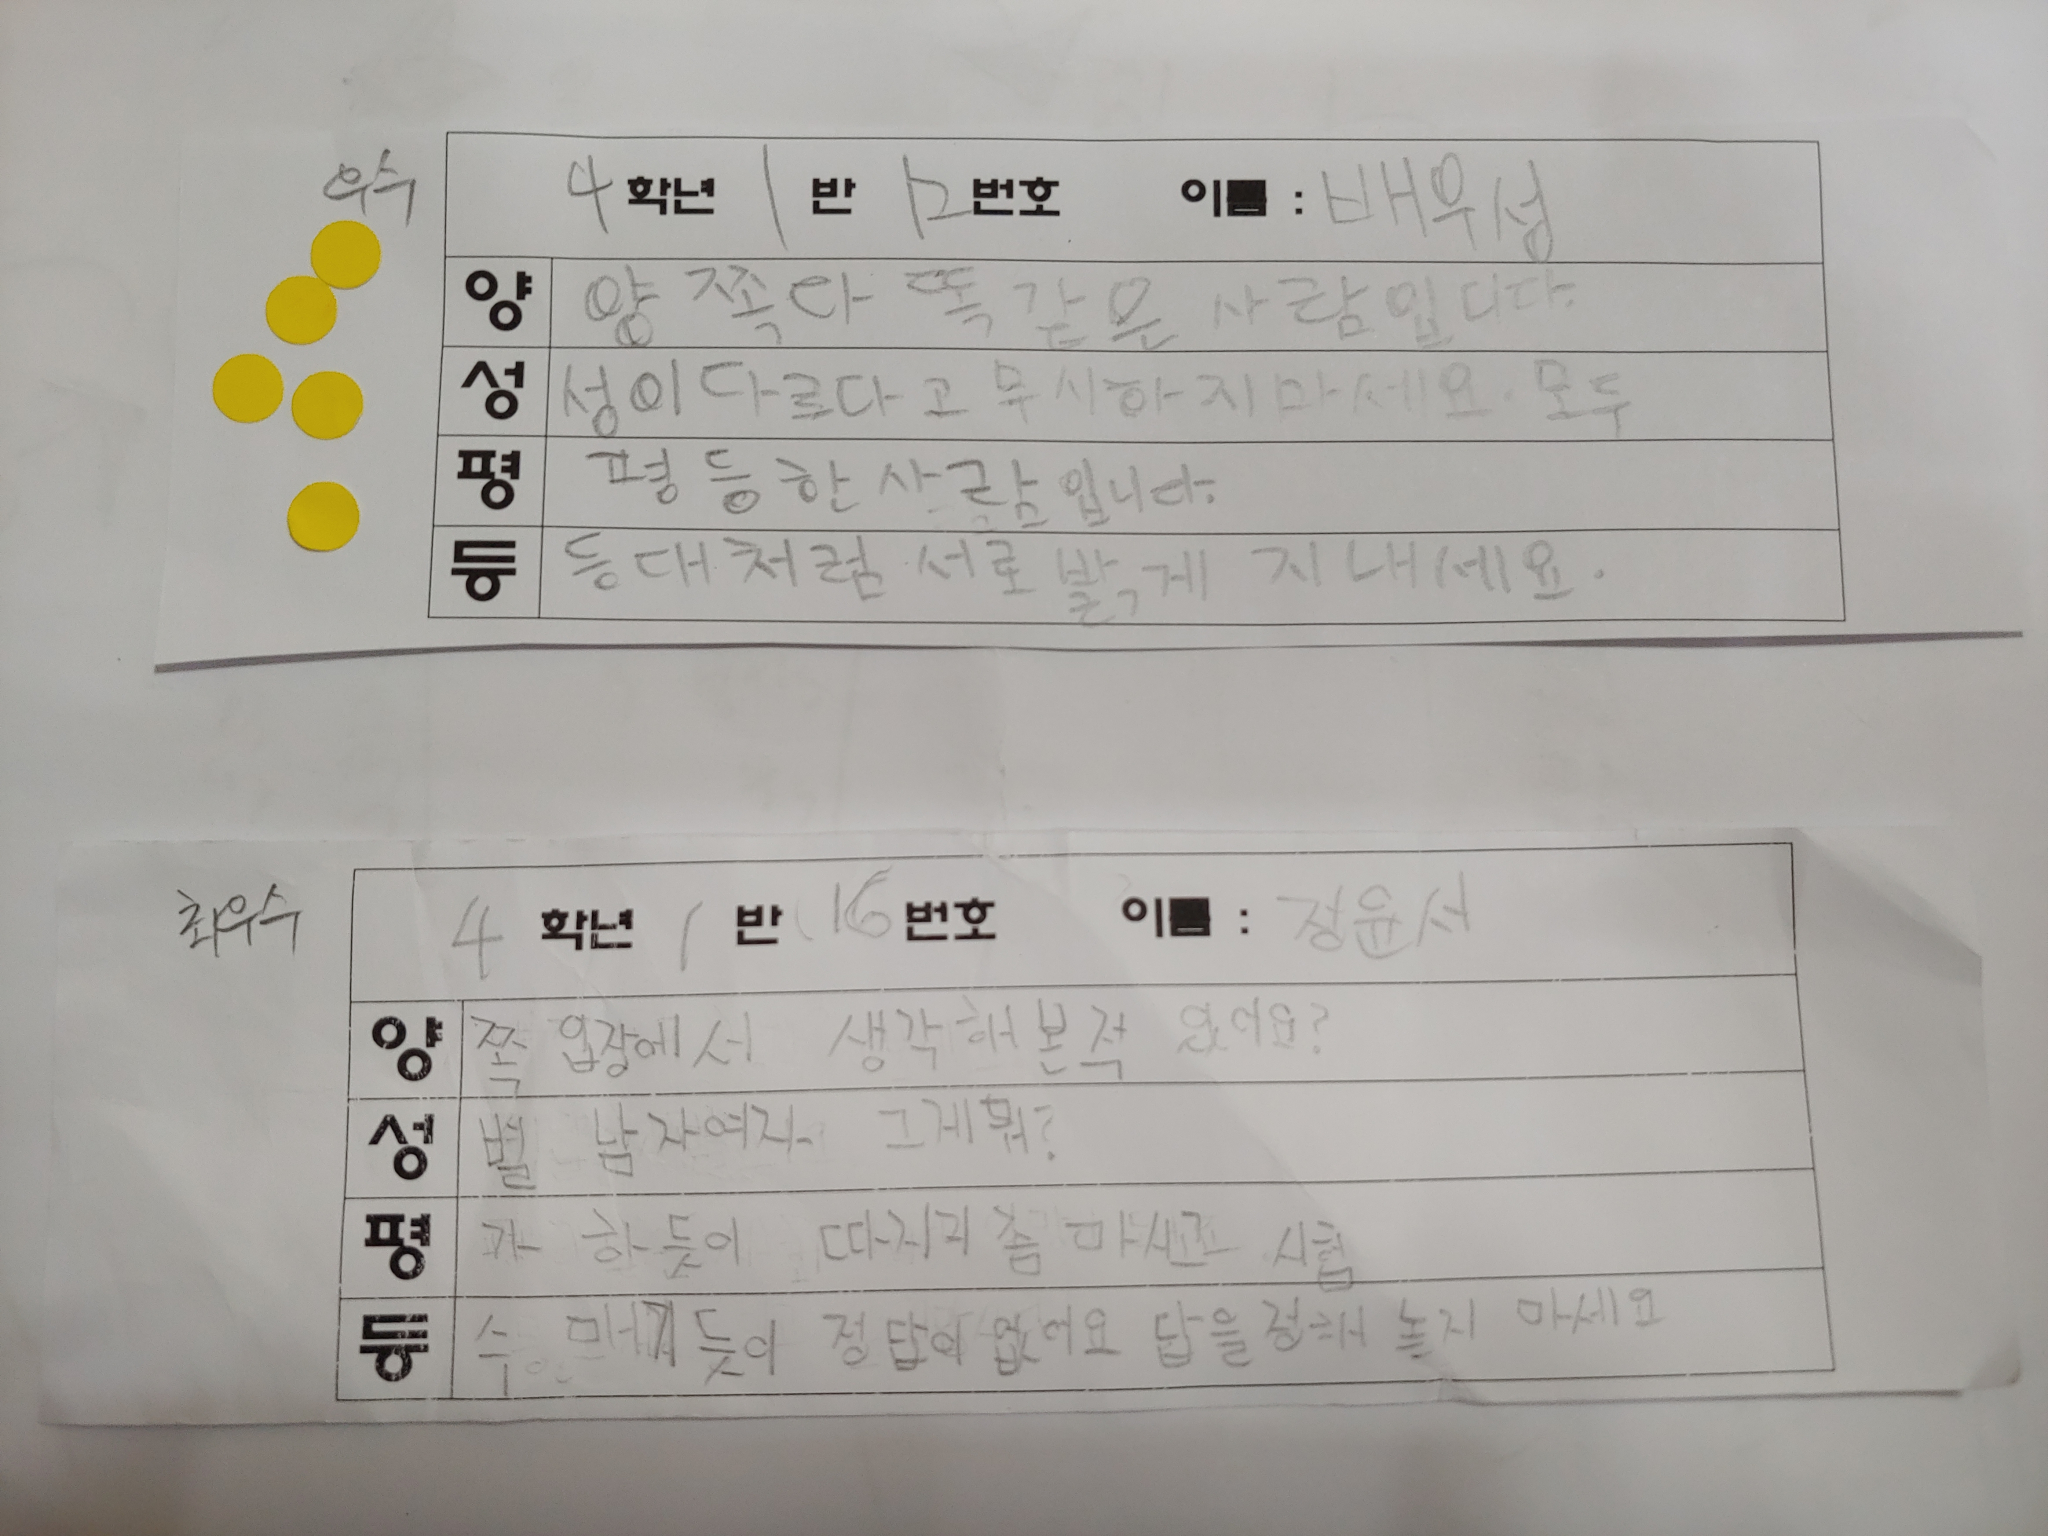 우수
4 학년 1 반 12 번호 이름 : 배우성
양 양쪽다 똑같은 사람입니다.
성 성이다르다고 무시하지마세요. 모두
평 평등한사람입니다.
등 등대처럼 서로 밝게 지내세요.
최우수
4 학년 1 반 16 번호 이름 : 정윤서
양 쪽 입장에서 생각해본적 없어요?
성 별 남자여자 그게뭐?
평 가 하듯이 따지지좀 마세요 시험
등 수 매기듯이 정답이없어요 답을정해 놓지 마세요